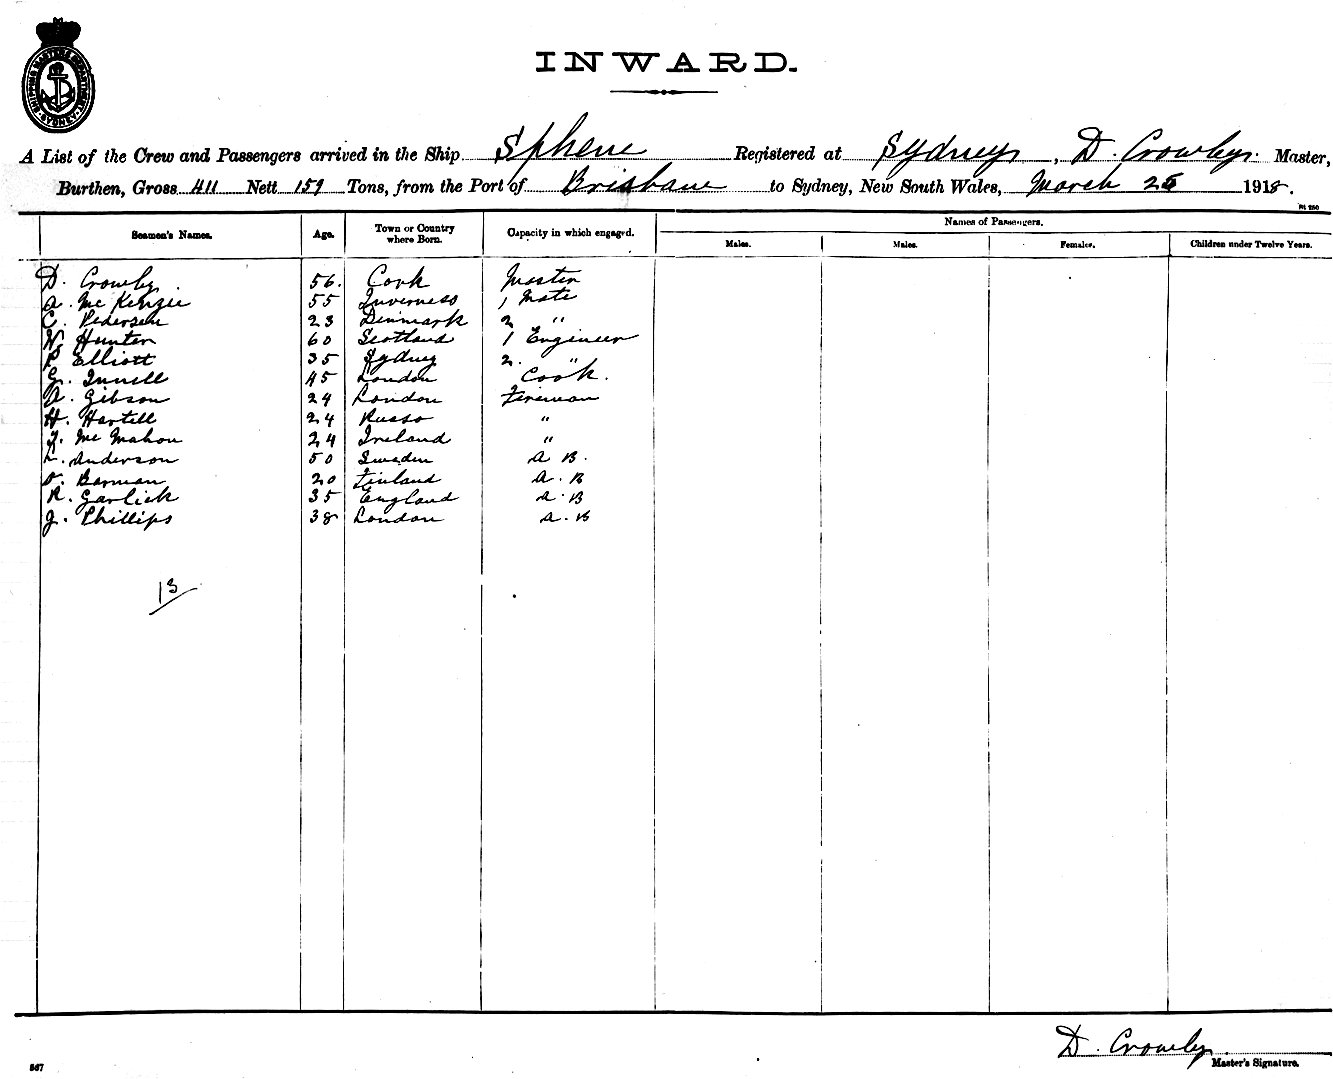 SHIPPING MASTERS DEPARTMENT SYDNEY
INWARD.
A List of the Crew and Passengers arrived in the Ship Sphene Registered at Sydney, D. Crowley Master,
Burthen, Gross 411 Nett 159 Tons, from the Port of Brisbane to Sydney, New South Wales, March 25 1918.
Seamen's Names. Age. Town or Country where Born. Capacity in which engaged. Names of Passengers.
Males. Males. Females. Children under Twelve Years.
D. Crowley 56. Cork Master
A. McKenzie 55 Inverness 1 Mate
C. Pedersen 23 Denmark 2 "
W. Hunter 60 Scotland 1 Engineer
P. Elliott 35 Sydney 2. "
G. 45 London Cook.
A. Gibson 29 London Fireman
H. Hartell 24 Russo "
J. McMahon 24 Ireland "
L. Anderson 50 Sweden A B.
Borman 20 Finland A. B
R. Garlick 35 England A. B
J. Phillips 38 London A. B
13
D. Crowley
Master's Signature.
567